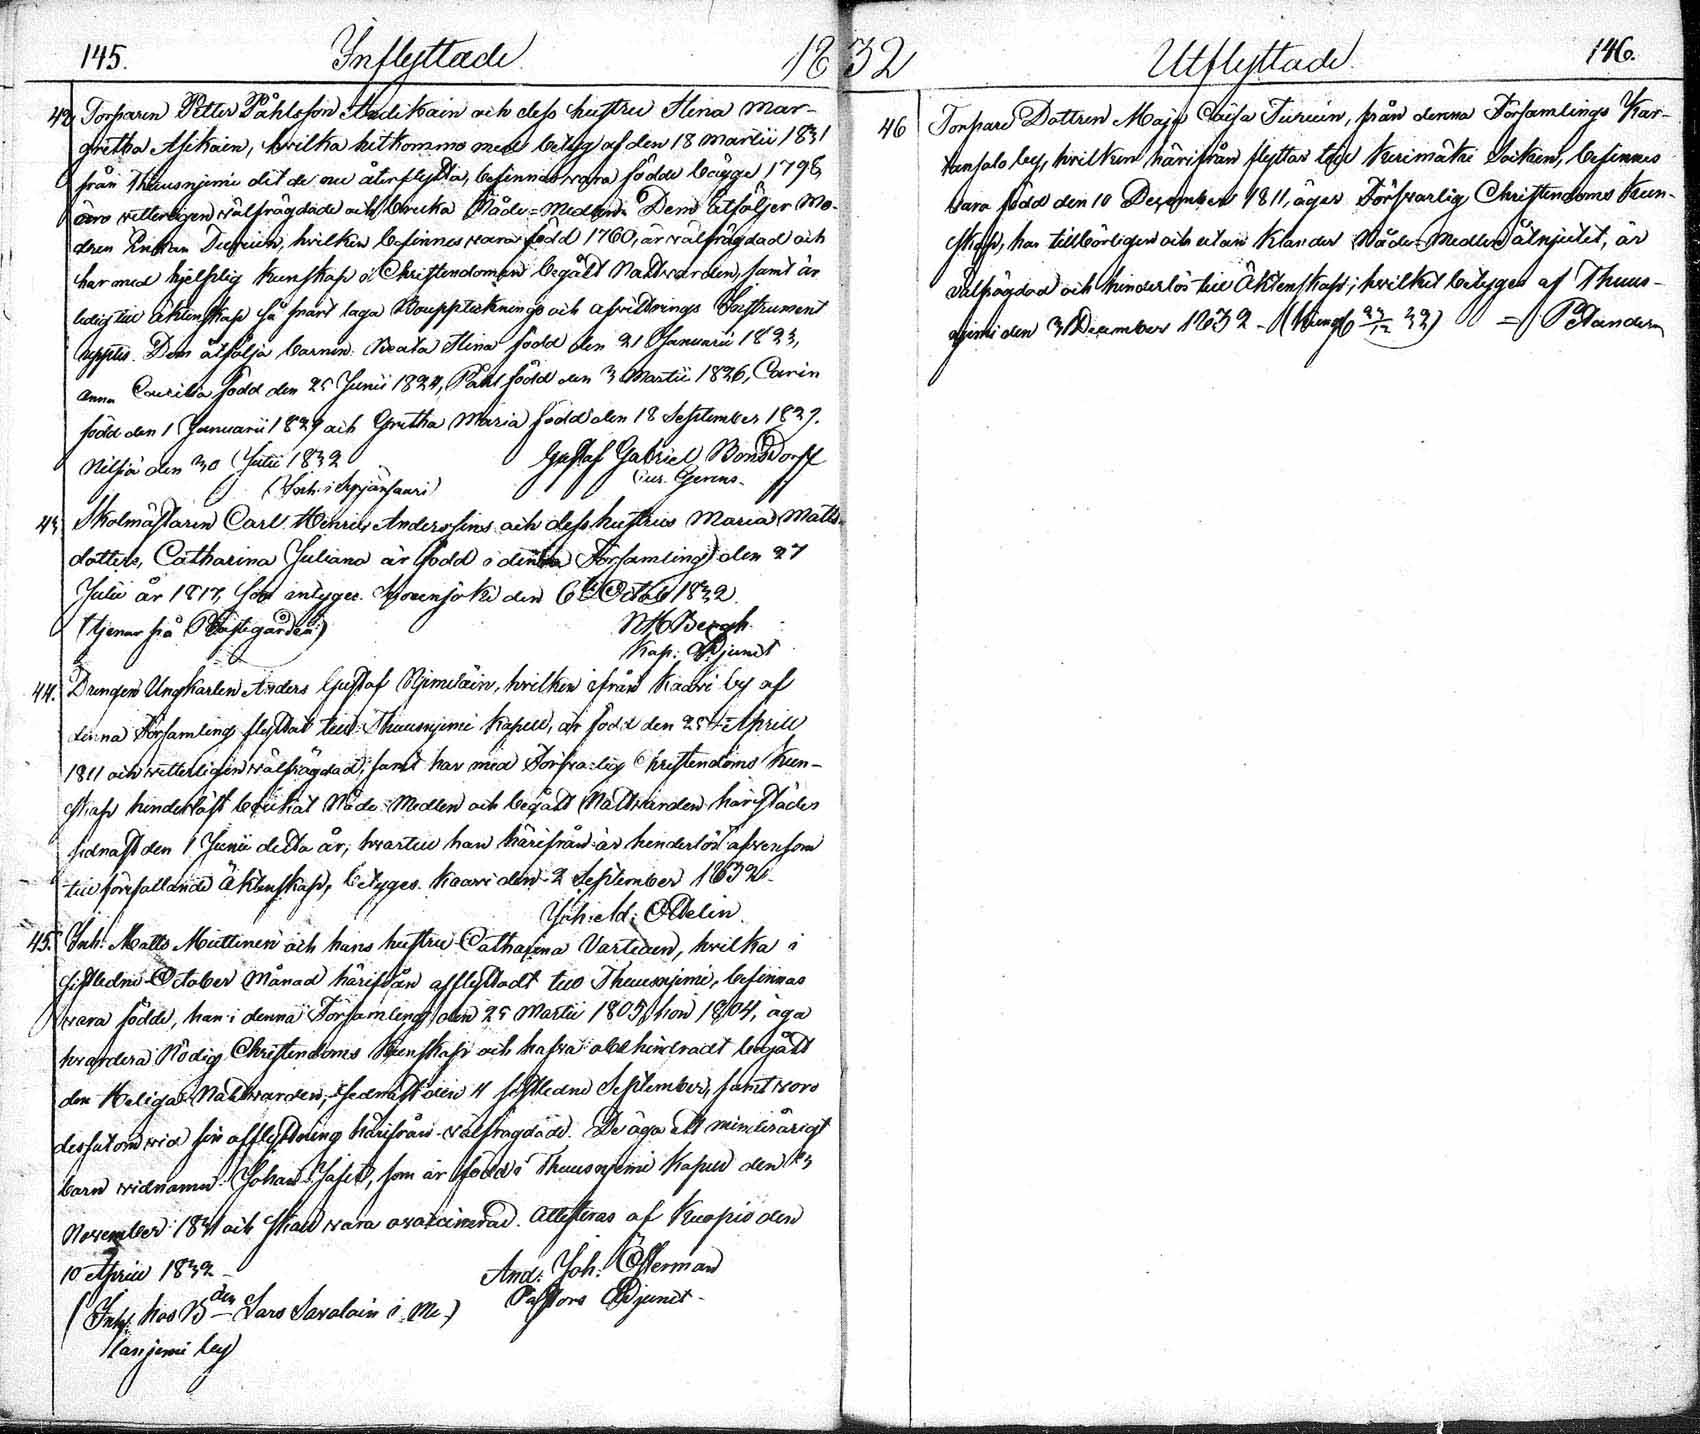 145. Inflyttade 18
42 Torparen Petter Påhlsson och dess hustru Stina Mar-
gretha Asikain, hvilka hitkommo med betyg af den 18 Martii 1831
från Thuusnjemi dit de nu återflytta, befinnas wara födde bägge 1798,
äro wetterligen wälfrägdade och bruka Nåde-Medlen. Dem åtföljer Mo-
dren Enkan Turuin, hvilken befinnes wara född 1760, är wälfrägdad och
har med hjelplig kunskap i Christendomen begått Nattwarden, samt är
ledig till äktenskap så snart laga Boupptecknings och afwittrings Instrument
upptes. Dem åtfölja barnen: Beata Stina född den 21 Januarii 1823,
Anna Caecilia född den 25 Junii 1824, Påhl född den 3 Martii 1826, Carin
född den 1 Januarii 1829 och Gretha Maria född den 18 September 1829.
Nilsiä den 30 Julii 1832 Gustaf Gabriel Bonsdorff
(Inh. i ) Gerens.
43. Skolmästaren Carl Henric Anderssins och dess hustrus Maria Matts-
dotters, Catharina Juliana är född i denna Församling den 27
Julii år 1817, som intygas. den 6te Octob 1832.
(tjenar på Prästgården) Bergh.
Kap: Adjunct
44. Drengen Ungkarlen Anders Gustaf Njimiläin, hvilken ifrån Kaawi by af
denna Församling flyttat till Thuusnjemi Kapell, är född den 25te Aprill
1811 och wetterligen wälfrägdad, samt har med Förswarlig Christendoms Kun-
skap hinderlöst brukat Nåde-Medlen och begått Nattwarden härstädes
sidnast den 1 Junii detta år, hwartill han härifrån är hinderlös äfwensom
till förefallande Äktenskap, betyges. Kaawi den 2 September 1832.
Joh: Ad: Odelin.
45. Inh: Matts Miettinen och hans hustru Catharina Vartiain, hvilka i
sistledne October Månad härifrån afflyttadt till Thuusnjemi, befinnas
wara födde, han i denna Församling den 25 Martii 1805, hon 1804, äga
hwardera Nödig Christendoms Kunskap och hafwa obehindradt begått
den Heliga Nattwarden, sednast den 11 sistledne September, samt woro
dessutom wid sin afflyttning härifrån wälfrägdade. De äga ett minderårigt
barn widnamn Johan Josef, som är född i Thuusnjemi Kapell den 23
November 1831 och skall wara owaccinerad. Attesteras af Kuopio den
10 Aprill 1832 And: Joh: Österman
(Inh: hos Bden Lars Sawolain i Me-) Pastors Adjunct.
lanjemi by)
32 Utflyttade 146.
46 Torpare Dottren Maja Caisa Turuin, från denna Församlings Kar-
by, hvilken härifrån flyttar till Kerimäki Socken, befinnes
vara född den 10 December 1811, äger Förswarlig Christendoms Kun-
skap, har tillbörligen och utan klander Nåde-Medlen åtnjutit, är
Välfrägdad och hinderlös till Äktenskap; hvilket betyges af Thuus-
njemi den 3 December 1832 - (Kungl 23/12 32) = P. Standern